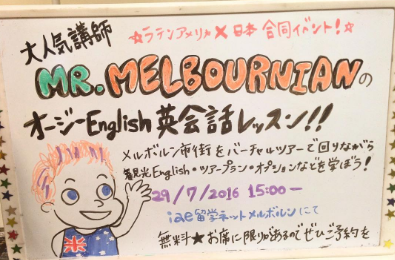 大人気講師
☆ラテンアメリカ×日本 合同イベント!☆
MR. MELBOURNIANの
オージーEnglish 英会話レッスン!!
メルボルン市街をバーチャルツアーで回りながら
観光English・ツアープラン・オプションなどを学ぼう!
29/7/2016 15:00ー
iae留学ネットメルボルンにて
無料★お席に限りがあるのでぜひご予約を